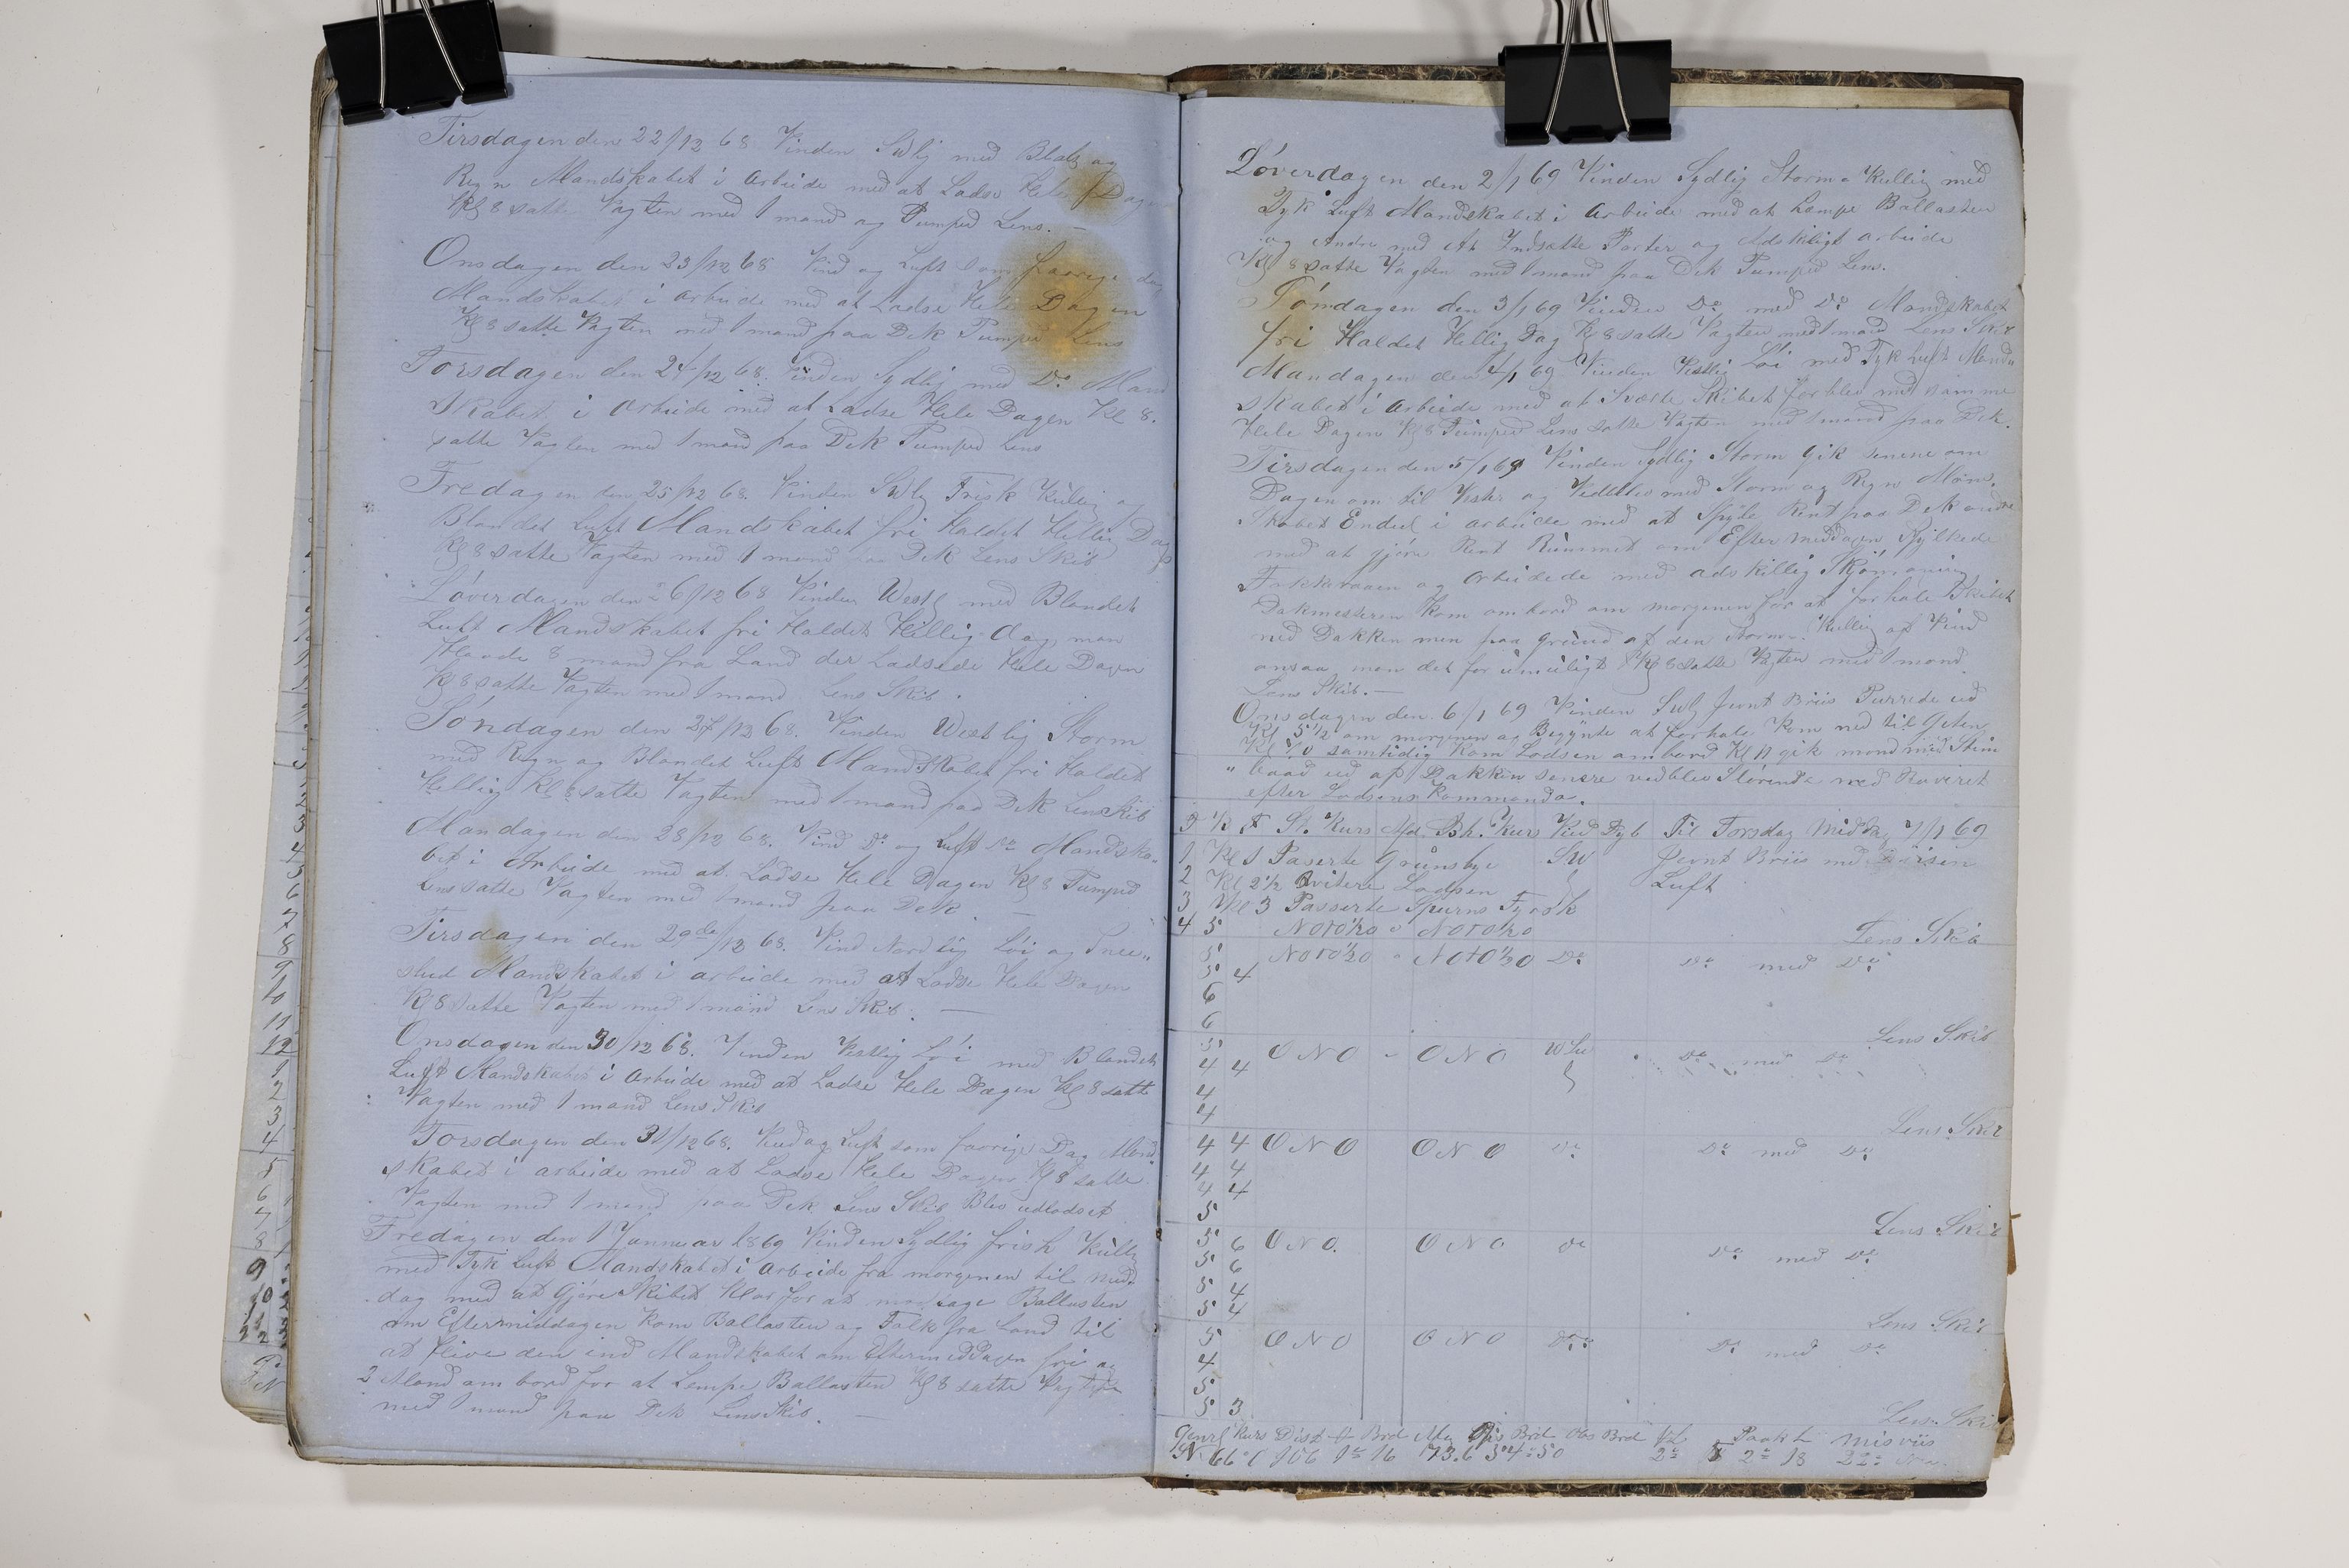 Tirsdagen den 22/12 68 Vinden Svlig med Blæst og
Regn Mandskabet i Arbeide med at Ladse Hele Dagen
Kl 8 satte Vagten med 1 mand og Pumped Lens. —
Onsdagen den 23/12 68 Vind og Luft som faarige dag
Mandskabet i Arbeide med at Ladse Hele Dagen
Kl 8 satte Vagten med 1 mand paa Dek Pumped Lens
Torsdagen den 24/12 68. Vinden Sydlig med Do Mand
skabet i Arbeide med at Ladse Hele Dagen Kl 8.
satte Vagten med 1 mand paa Dek Pumped Lens
Fredagen den 25/12 68. Vinden Svlg Frisk Kuling og
Blandet Luft Mandskabet fri Haldet Hellig Dag
Kl 8 satte Vagten med 1 mand paa Dek Lens Skib
Löverdagen den 26/12 68 Vinden Westl med Blandet
Luft Mandskabet fri Haldet Hellig dag, man
Havde 8 mand fra Land der Ladsede Hele Dagen
Kl 8 satte Vagten med 1 mand Lens Skib.
Söndagen den 27/12 68. Vinden Westlig Storm
med Regn og Blandet Luft Mandskabet fri Haldet
Hellig Kl 8 satte Vagten med 1 mand paa Dek Lens Skib
Mandagen den 28/12 68. Vind Do og Luft Do Mandska-
bet i Arbeide med at Ladse Hele Dagen Kl 8 Pumped
Lens satte Vagten med 1 mand paa Dek. —
Tirsdagen den 29de/12 68. Vind Nordlig Löi og Snee"
slud Mandskabet i arbeide med at Ladse Hele Dagen
Kl 8 satte Vagten med 1 mand Lens Skib. —
Onsdagen den 30/12 68. Vinden Vestlig Löi med Blandet
Luft Mandskabet i Arbeide med at Ladse Hele Dagen Kl 8 satte
Vagten med 1 mand Lens Skib
Torsdagen den 31/12 68. Vind og Luft som faarige Dag Mand
skabet i arbeide med at Ladse Hele Dagen Kl 8 satte
Vagten med 1 mand paa Dek Lens Skib Blev udladset
Fredagen den 1 Januar 1869 Vinden Sydlig frisk Kuling
med Tyk Luft Mandskabet i Arbeide fra morgenen til mid-
dag med at Gjöre Skibet Klar for at modtage Ballasten
om Eftermiddagen kom Ballasten og Folk fra Land til
at Hive den ind Mandskabet om Eftermiddagen fri og
2 Mand om bord for at Lempe Ballasten Kl 8 satte Vagten
med 1 mand paa Dek Lens Skib. —
Löverdagen den 2/1 69 Vinden Sydlig Storm= Kulling med
Tyk Luft Mandskabet i Arbeide med at Lempe Ballasten
og Andre med At Indsætte Porter og Adskiligt arbeide
Kl 8 satte Vagten med 1 mand paa Dek Pumped Lens.
Söndagen den 3/1 69 Vinden Do med Do Mandskabet
fri Haldet Hellig Dag Kl 8 satte Vagten med 1 mand Lens Skib
Mandagen den 4/1 69 Vinden Vestlig Löi med Tyk Luft Mand"
skabet i Arbeide med at Svælle Skibet forblev med samme
Hele Dagen Kl 8 Pumped Lens satte Vagten med 1 mand paa Dek.
Tirsdagen den 5/1 69 Vinden Sydlig Storm Gik senere om
Dagen om til Vester og Vedblev med Storm og Regn Man-
skabet Endel i arbeide med at Spyle Rent paa Dek andre
med at gjöre Rent Rummet om Efter meddagen
Fokkeraaen og arbeidede med adskillig Skjömaning
Dakmesteren Kom ombord om morgenen for at forhale Skibet
ned Dakken men paa grund af den Storm= Kulling af Vind
ansaa man det for umuligt Kl 8 satte Vagten med 1 mand
Lens Skib. —
Onsdagen den 6/1 69 Vinden Svl Jevnt Briis Purrede ud
Kl 5 1/2 om morgenen og Begynte at forhale Kom ned til Geten
Kl 10 samtidig Kom Lodsen ombord Kl 11 gik mand med Stim
" baad ud af Dakken senere vedblev Störende med Roveret
efter Lodsens Kommando.
St. Kurs Afd Bh. Kurs Vind Til Torsdag Middag 7/1 69
1 Kl 1 Paserte Grimsbye SW Jevnt Briis med Luft
2 Kl 2 1/2 Qvitere Lodsen
3 Kl 3 Passerte Spurns Fyrsk
4 5 NOtO1/2O " NOtO1/2O Lens Skib
5 NOtO1/2O " NOtO1/2O Do Do med Do
5 4
6
6 Lens Skib
5 ONO " ONO WSW Do med Do
4 4
4
4 Lens Skib
4 4 ONO ONO Do Do med Do
4 4
4 4
5 Lens Skib
5 6 ONO. ONO Do Do med Do
5 6
5 4
5 4 Lens Skib
5 ONO ONO Do Do med Do
4
5
5 3 Lens Skib
Genrl Kurs Dist Brd Obs Brd Misviis
N 66° O 106 1° 16 73.6 54°50 2° 2° 18 22°